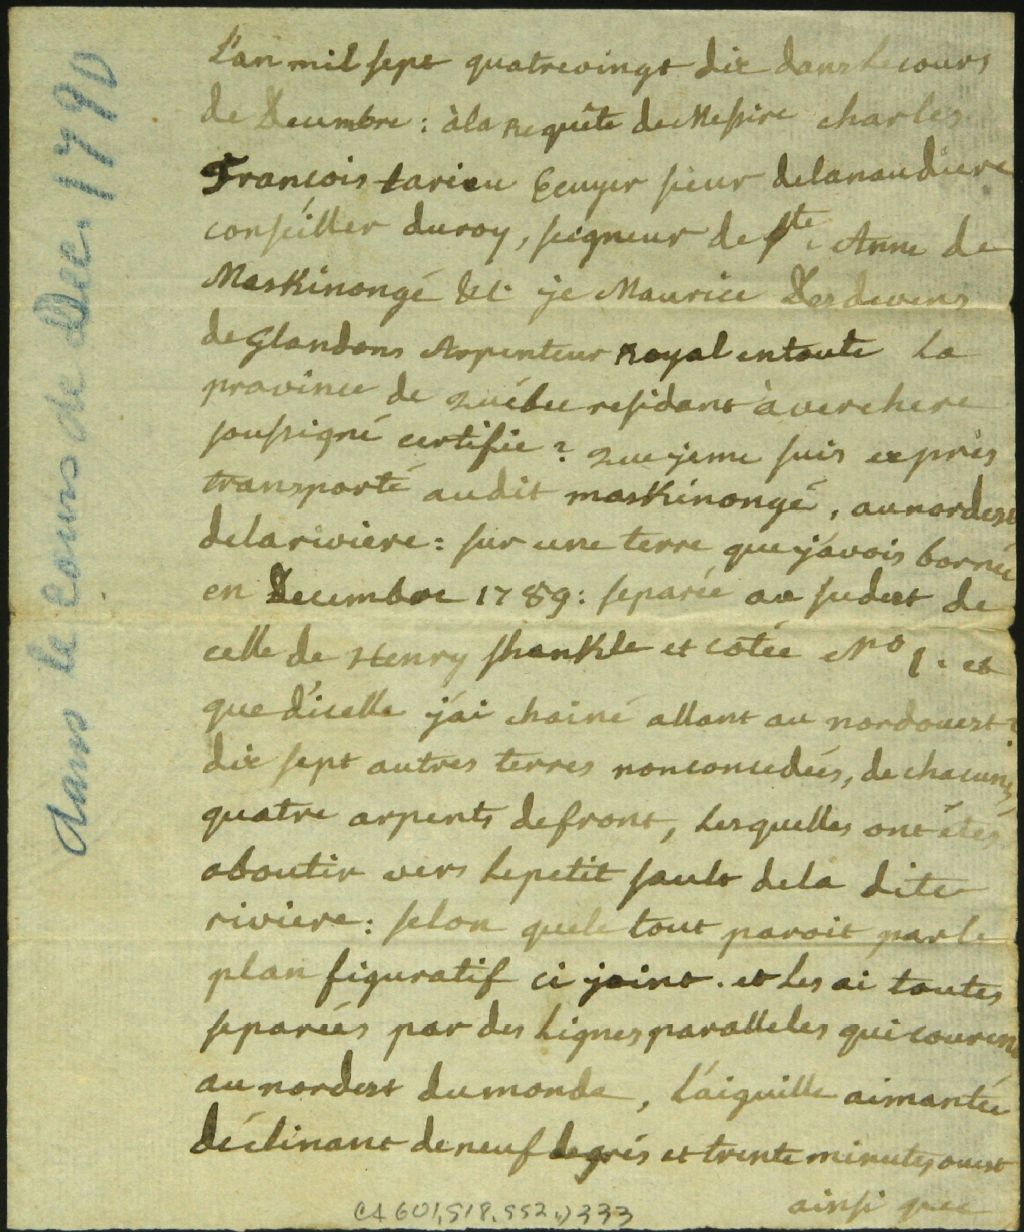 L'an mil sept quatrevingt dix dans le cours
de Decembre : à la Requête de Messire charles
François tarieu Ecuyer sieur delanaudiere
conseiller du roy, seigneur de Ste. Anne de
Maskinongé &c. je Maurice Desdevens
de Glandons Arpenteur Royal en toute La
province de Québec residant à verchere
soussigné certifie ? que je me suis exprès
transporté au dit maskinongé, au nordest
de la riviere : sur une terre que j'avois borné
en Decembre 1789 : separée au sudest de
celle de Henry Shankle et cotée No 1. et
que d'icelle j'ai chainé allant au nordouest ?
dix sept autres terres nonconcedées, de chacunes
quatre arpents de front, Lesquelles ont étés
aboutir vers Le petit sault de la dite
riviere : selon que le tout paroit par le
plan figuratif ci joint. et Les ai toutes
separées par des Lignes paralleles qui courent
au nordest du monde, L'aiguille aimantée
déclinant de neuf degrés et trente minutes ouest
ainsi que
Dans le Cours de Dec. 1790
CA 601, S18, SS2, D333